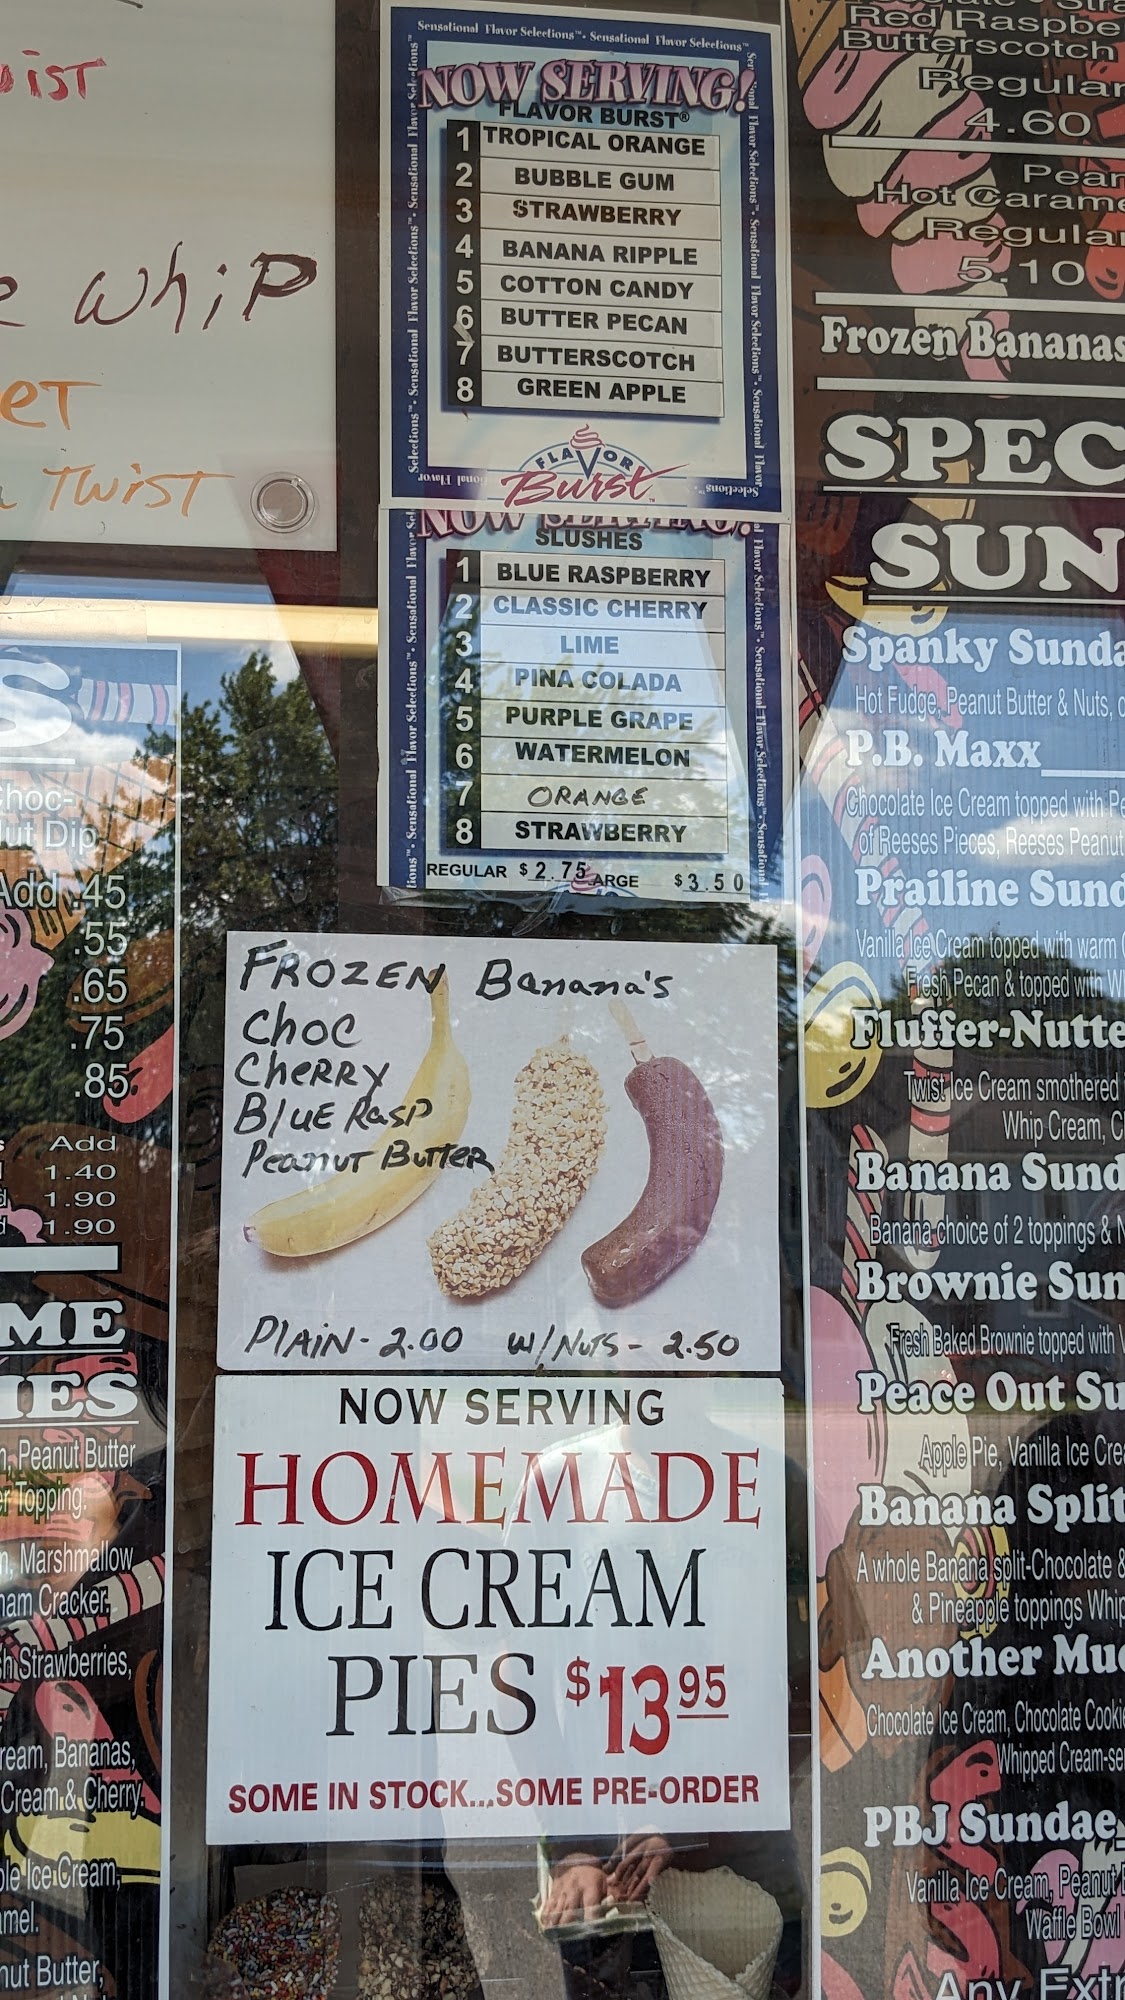 WhiP
TWIST
Sensational Flavor Selections™ • Sensational Flavor Selections™
NOW SERVING!
FLAVOR BURST®
1 TROPICAL ORANGE
2 BUBBLE GUM
3 STRAWBERRY
4 BANANA RIPPLE
5 COTTON CANDY
6 BUTTER PECAN
7 BUTTERSCOTCH
8 GREEN APPLE
FLAVOR
Burst™
NOW SERVING!
SLUSHES
1 BLUE RASPBERRY
2 CLASSIC CHERRY
3 LIME
4 PINA COLADA
5 PURPLE GRAPE
6 WATERMELON
7 ORANGE
8 STRAWBERRY
REGULAR $2.75 LARGE $3.50
FROZEN Banana's
Choc
CheRRy
BluE Rasp
Peanut Butter
PLAIN - 2.00 w/NuTS - 2.50
NOW SERVING
HOMEMADE
ICE CREAM
PIES $13.95
SOME IN STOCK...SOME PRE-ORDER
Choc-
Nut Dip
Add .45
.55
.65
.75
.85
Add
1.40
1.90
1.90
Peanut Butter
Topping.
Marshmallow
Cracker.
Strawberries,
Bananas,
Cream & Cherry.
Ice Cream,
Butter,
Red Raspbe
Butterscotch
Regular
4.60
Hot Carame
Regular
5.10
Frozen Bananas
SPEC
SUN
Spanky Sunda
Hot Fudge, Peanut Butter & Nuts,
P.B. Maxx
Chocolate Ice Cream topped with Pe
of Reeses Pieces, Reeses Peanut
Prailine Sund
Vanilla Ice Cream topped with warm
Fresh Pecan & topped with W
Fluffer-Nutte
Twist Ice Cream smothered
Whip Cream,
Banana Sund
Banana choice of 2 toppings &
Brownie Sun
Fresh Baked Brownie topped with
Peace Out Su
Apple Pie, Vanilla Ice Crea
Banana Split
A whole Banana split-Chocolate &
& Pineapple toppings Whip
Another Mud
Chocolate Ice Cream, Chocolate Cookie
Whipped Cream-se
PBJ Sundae
Vanilla Ice Cream, Peanut
Waffle Bowl
Any Extr